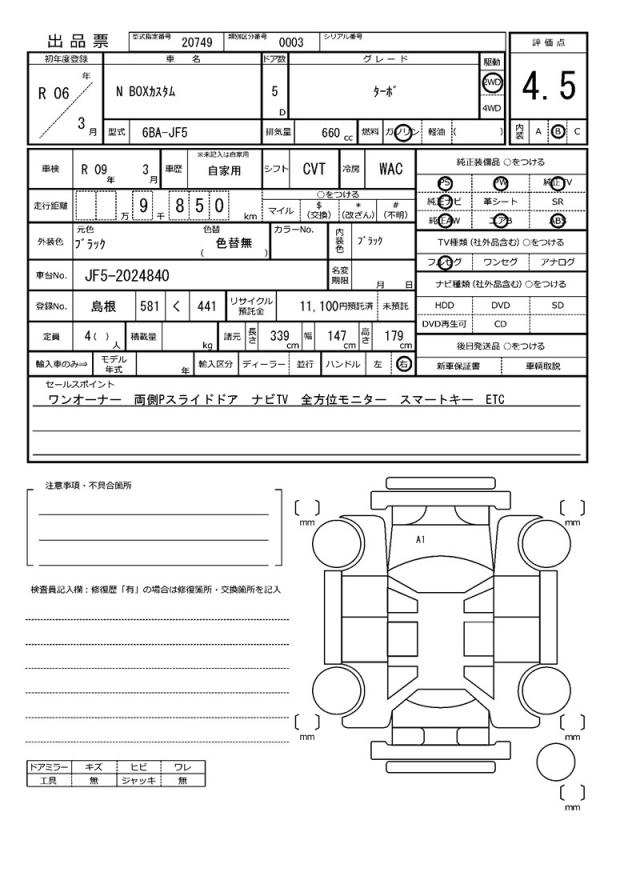 出品票 型式指定番号 20749 類別区分番号 0003 シリアル番号
評価点
4.5
初年度登録 車名 ドア数 グレード 駆動
R 06 年 3 月
N BOXカスタム 5 D ターボ 2WD 4WD
型式 6BA-JF5 排気量 660 cc 燃料 ガソリン 軽油 ( )
内装 A B C
車検 R 09 年 3 月 車歴 ※未記入は自家用 自家用 シフト CVT 冷房 WAC
走行距離 万 9 千 8 5 0 km ○をつける
マイル $ (交換) * (改ざん) # (不明)
外装色 元色 ブラック 色替 色替無 ( ) カラーNo. 内装色 ブラック
車台No. JF5-2024840 名変期限 月 日
登録No. 島根 581 く 441 リサイクル預託金 11,100円預託済 未預託
定員 4( )人 積載量 kg 諸元 長さ 339 cm 幅 147 cm 高さ 179 cm
輸入車のみ⇒ モデル年式 年 輸入区分 ディーラー 並行 ハンドル 左 右
純正装備品 ○をつける
PS PW 純正TV
純正ナビ 革シート SR
純正AW エアB ABS
TV種類 (社外品含む) ○をつける
フルセグ ワンセグ アナログ
ナビ種類 (社外品含む) ○をつける
HDD DVD SD
DVD再生可 CD
後日発送品 ○をつける
新車保証書 車輌取説
セールスポイント
ワンオーナー 両側Pスライドドア ナビTV 全方位モニター スマートキー ETC
注意事項・不具合箇所
検査員記入欄：修復歴「有」の場合は修復箇所・交換箇所を記入
ドアミラー キズ ヒビ ワレ
工具 無 ジャッキ 無
〔 〕 mm
〔 〕 mm
A1
〔 〕 mm
〔 〕 mm
〔 〕 mm